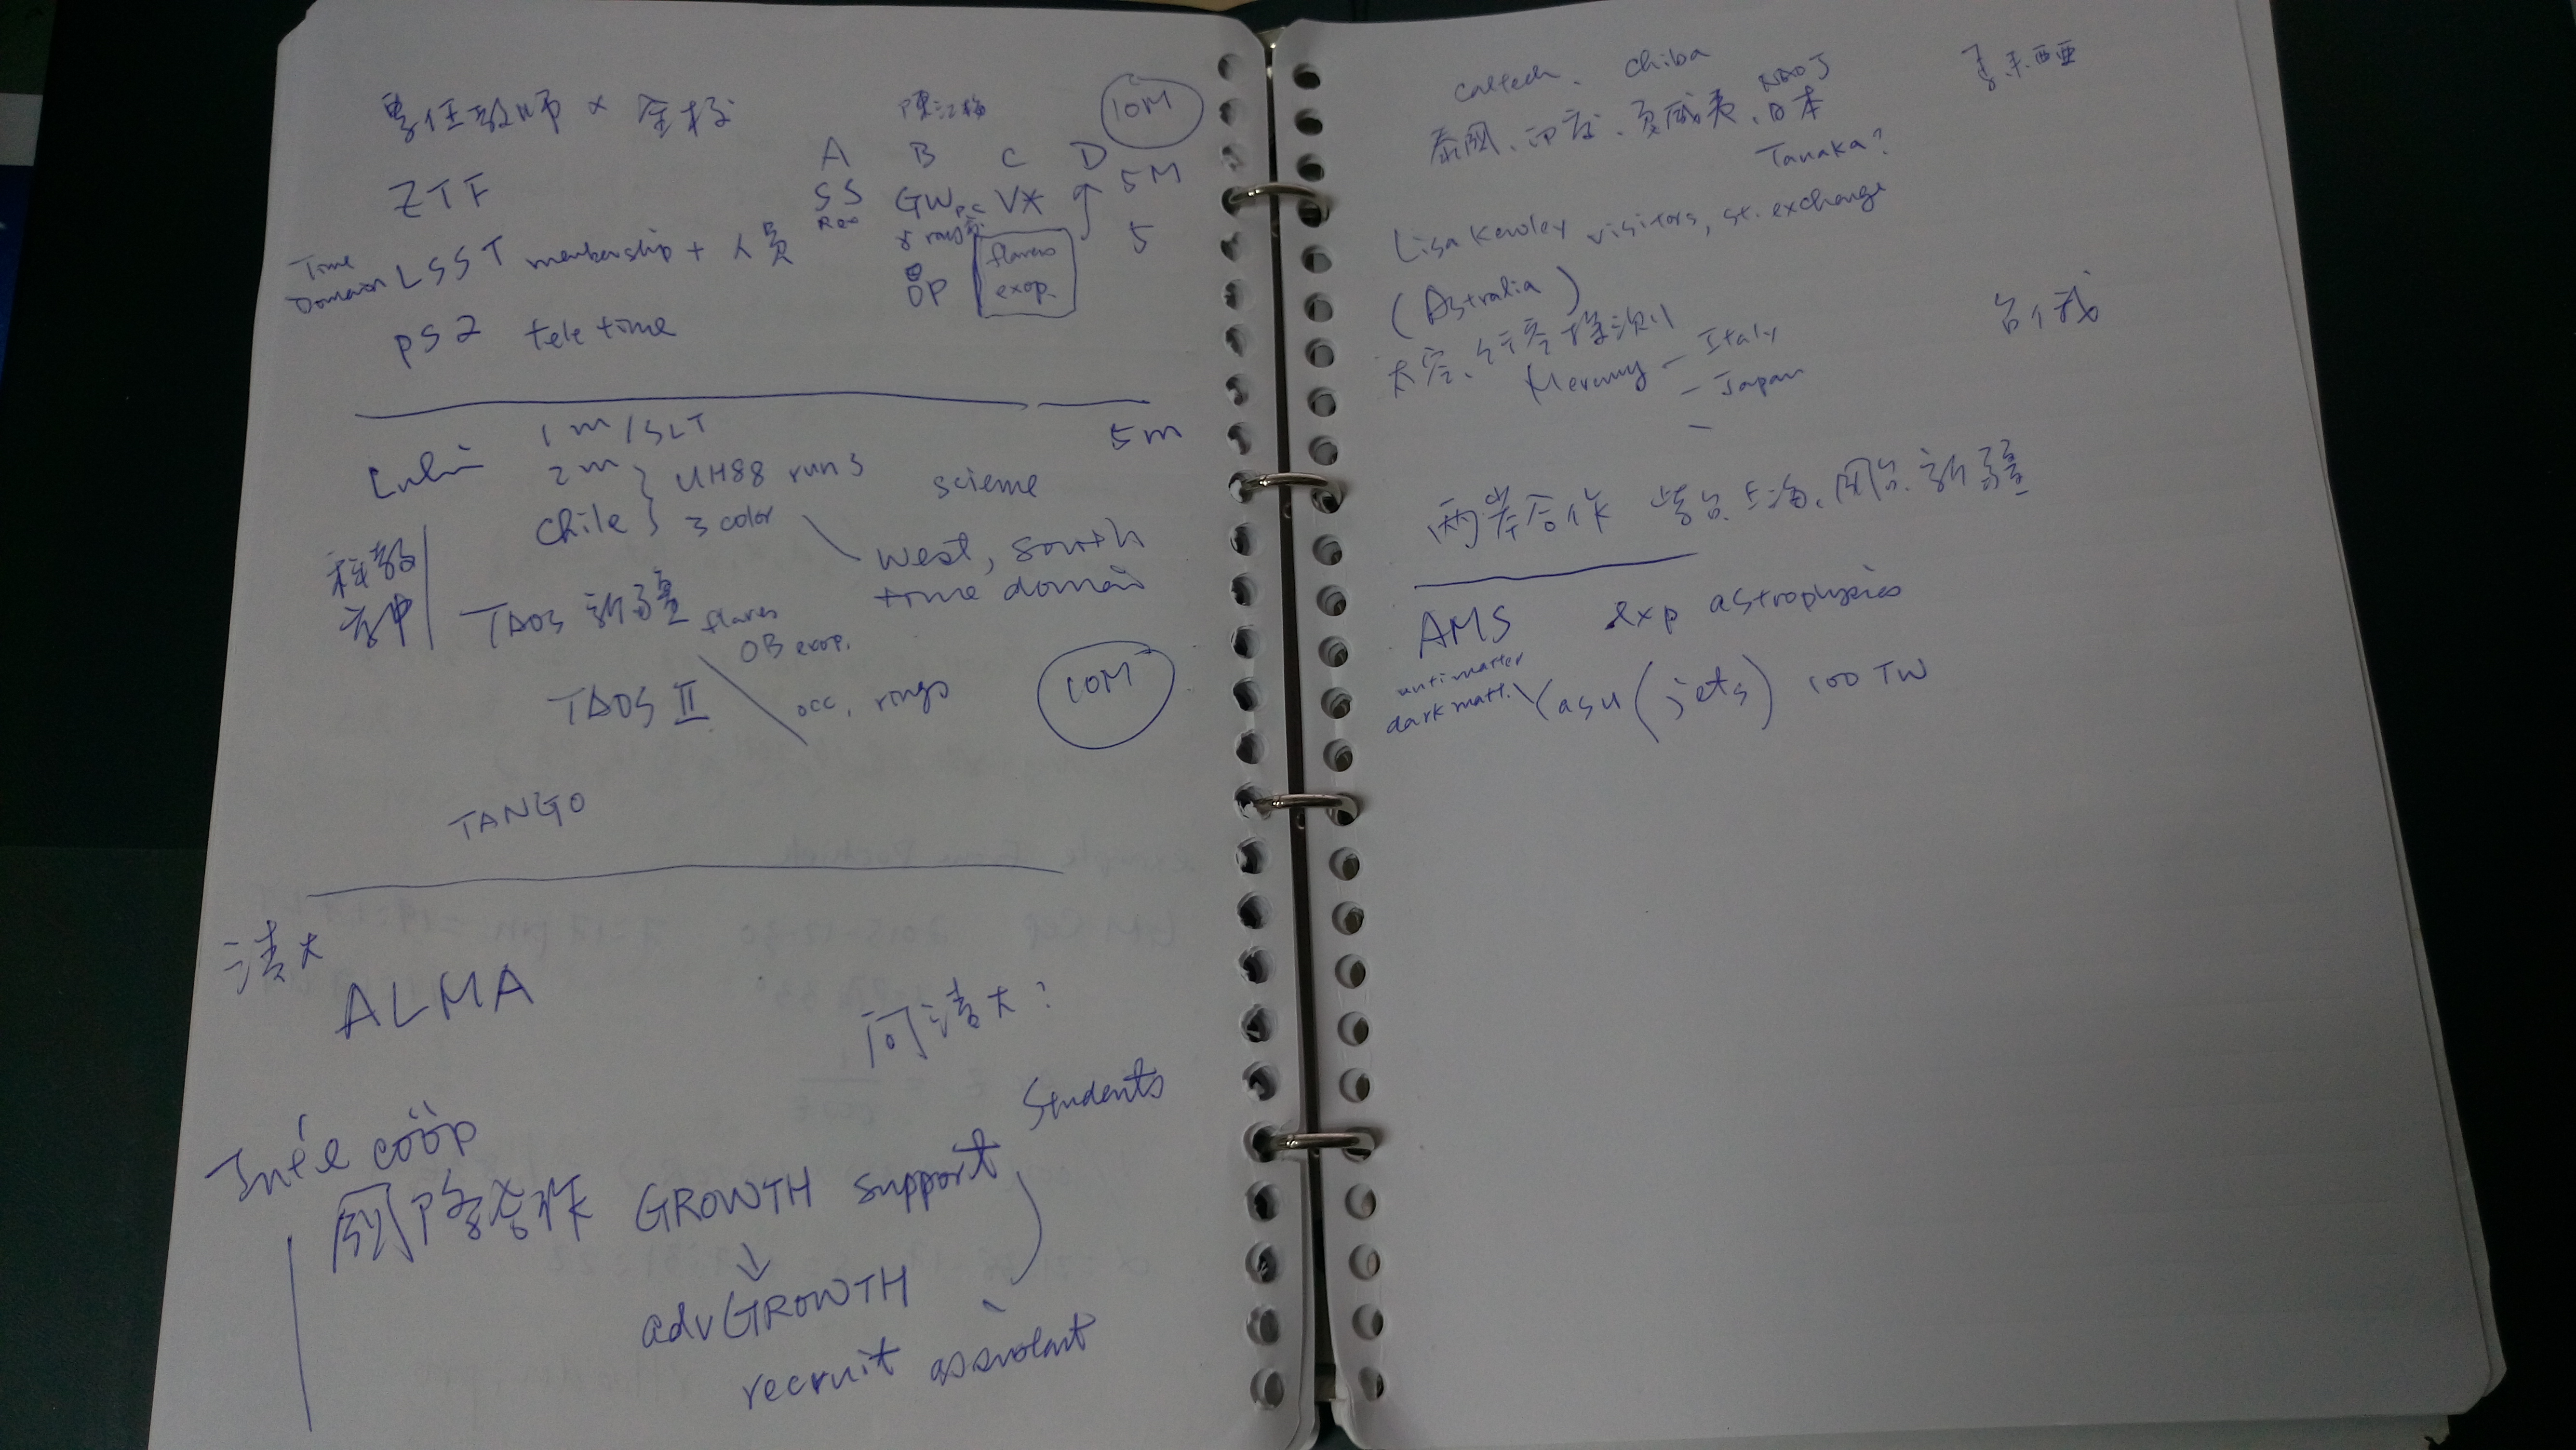 專任教師 × 全校
陳江梅
10M
A B C D
ZTF
SS GW V* 5M
Roo
γ rays
Time Domain LSST membership + 人員
flares
exop.
5
OP
PS2 tele time
Lulin 1m/SLT 5m
2m UH88 runs science
Chile 3 color
west, south
time domain
科教
高中
TAOS 新疆 flares
OB exop.
TAOS II occ, rings 10M
TANGO
清大
ALMA
向清大?
Students
Int'l coöp
國際合作 GROWTH support
adv GROWTH
recruit assistant
Caltech, Chiba
NAOJ
泰國、印度、夏威夷、日本
Tanaka?
Lisa Kewley visitors, st. exchange
(Astralia)
太空、行星探測
Mercury - Italy
- Japan
-
兩岸合作 紫台、上海、國台、新疆
AMS exp astrophysics
antimatter
dark matt. Yasu (jets) 100 TW